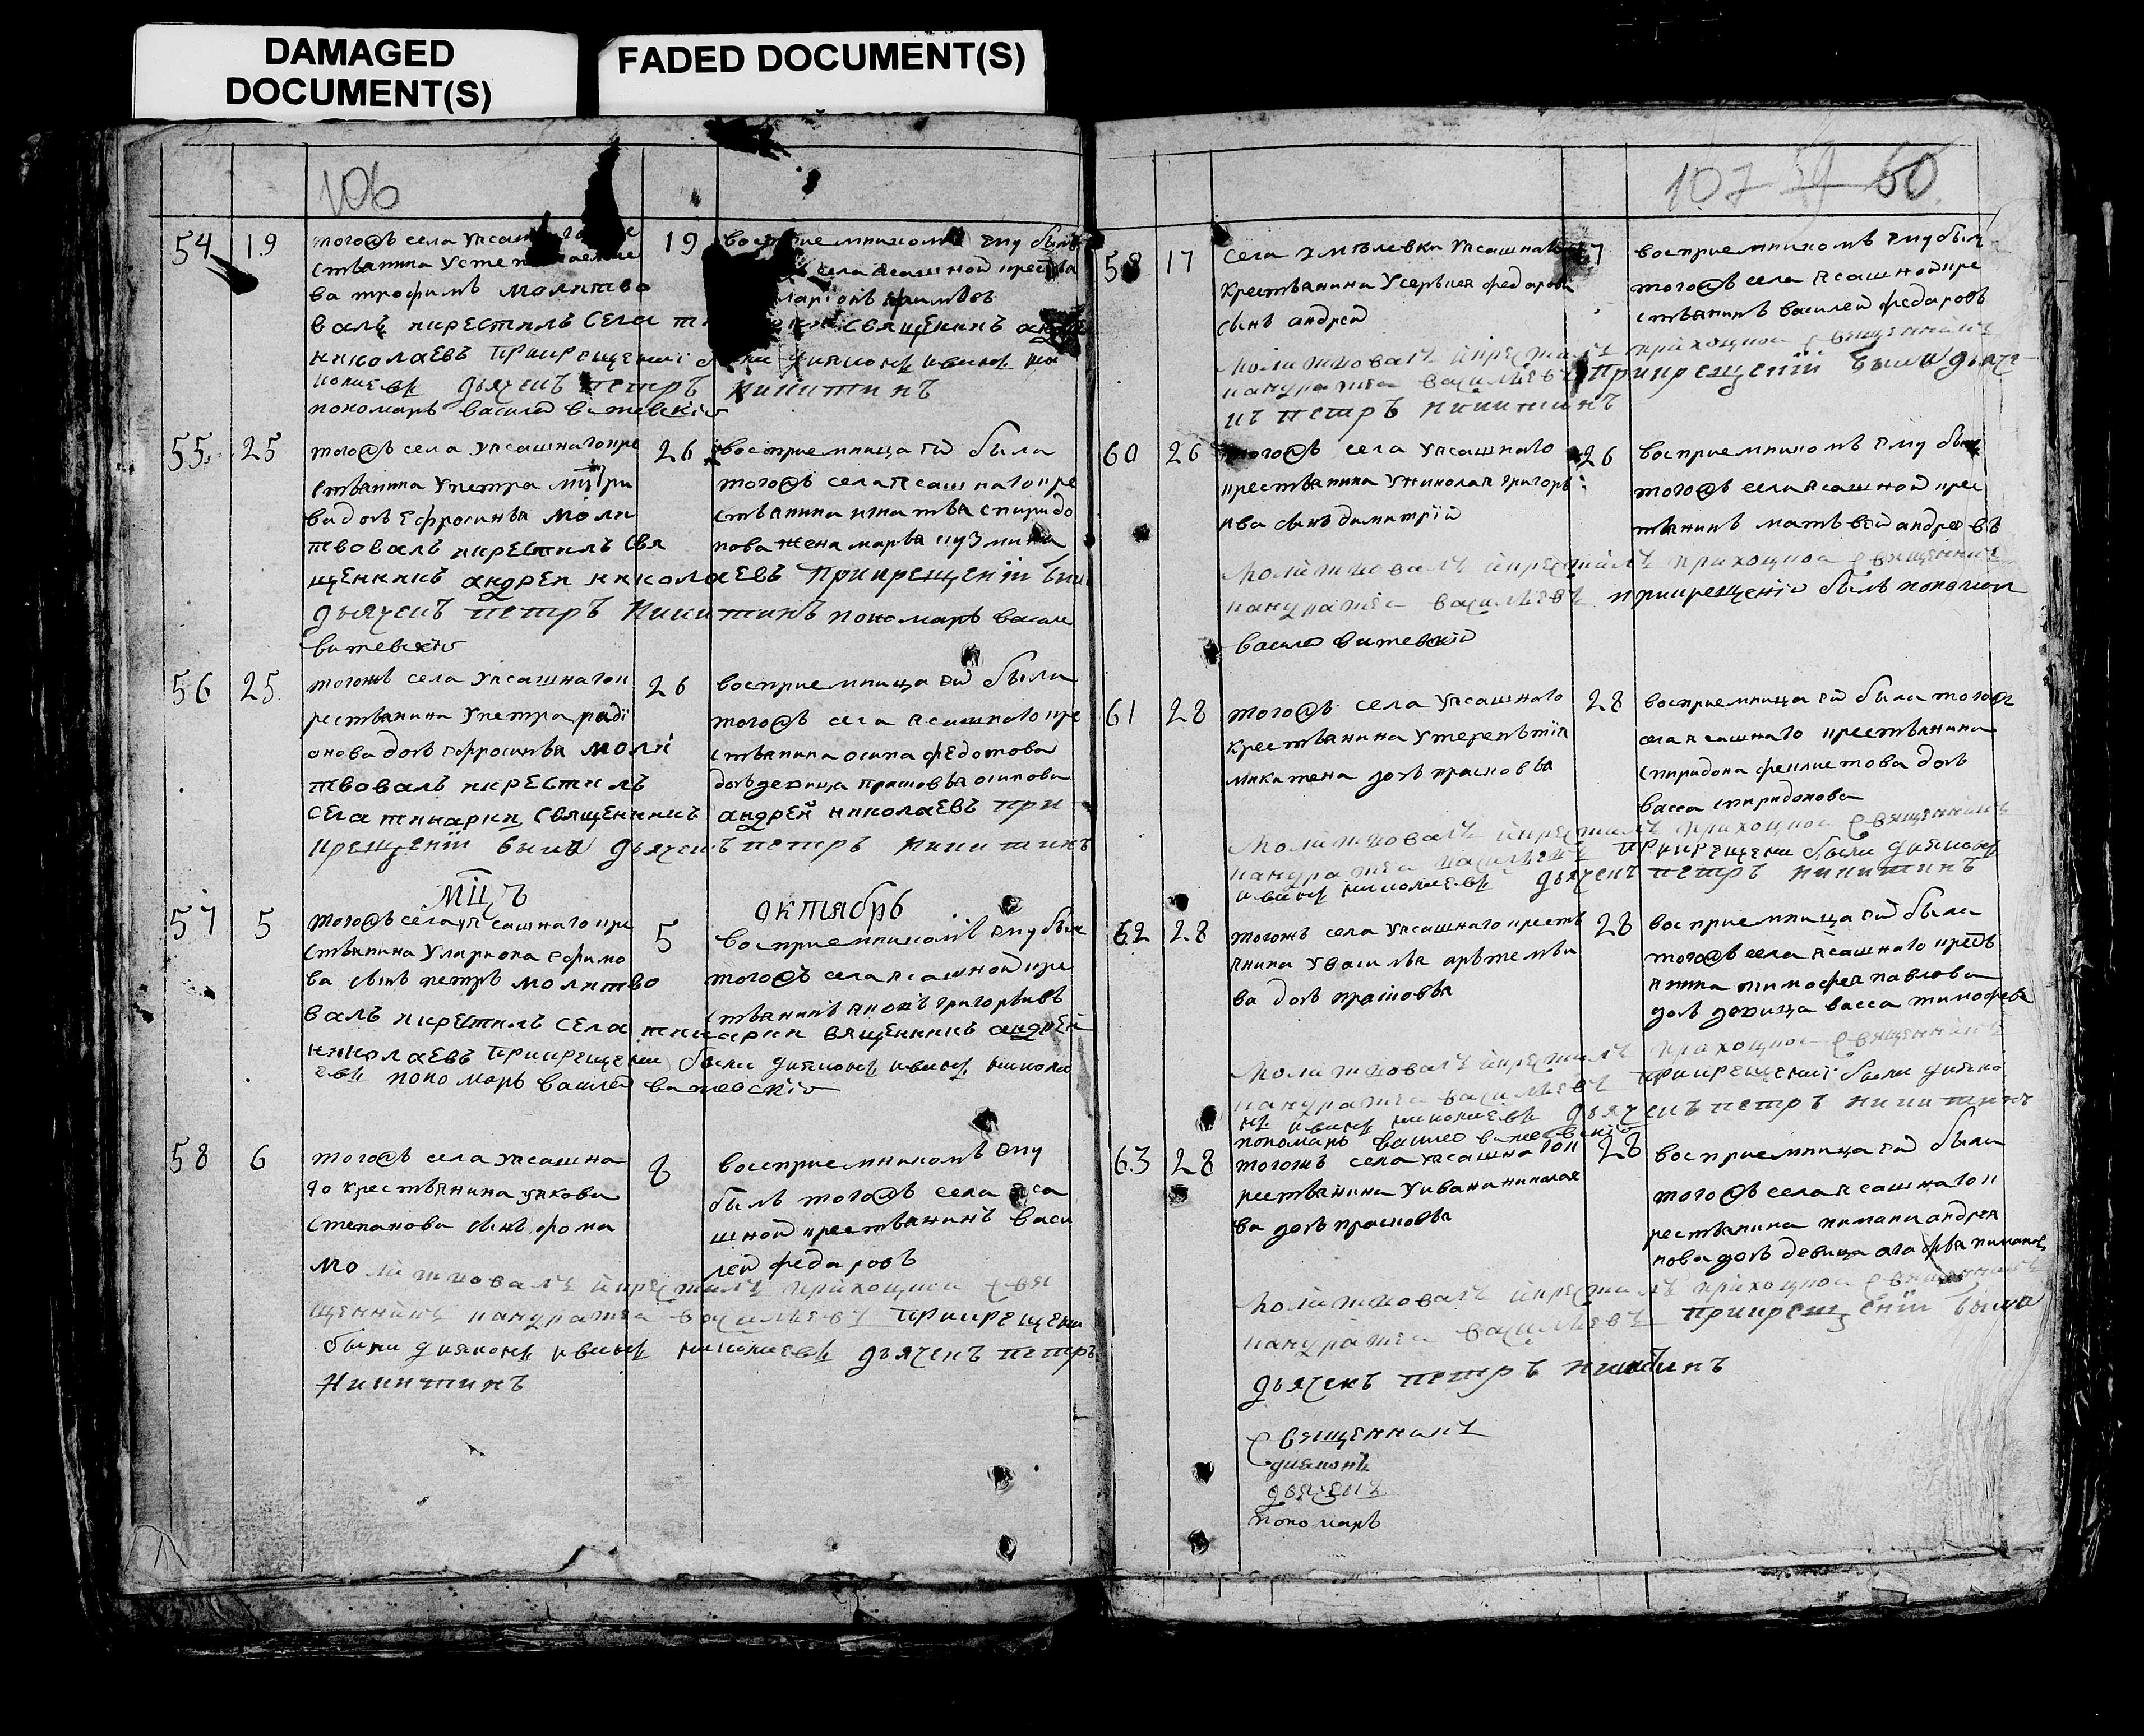 DAMAGED
DOCUMENT(S)
FADED DOCUMENT(S)
106
54 19
тогожъ села уясашнаго
ствянина Устеп
ва трофимъ молитво
валъ икрестилъ села
николаевъ прикрещениі
дьячекъ петръ никитинъ
пономарь василей витевскій
19 восприемникомъ ему былъ
села ясашной крестья
священикъ
диякон иван
55 25
тогожъ села уясашнагокре
ствянина Упетра
ва дочь ефросинья моли
твовалъ икрестилъ свя
щенникъ андреи николаевъ прикрещеніи были
дьячекъ петръ никитинъ пономарь василе
витевскій
26 восприемница ей была
тогожъ села ясашнагокре
ствянина игнатья спиридо
нова жена марья кузмина
56 25
тогожъ села уясашнагок
рестьянина Упетра раді
онова дочь ефросинья моли
твовалъ икрестилъ
села тинарки священникъ андрей николаевъ при
крещеніи были дьячекъ петръ никитинъ
26 восприемница ей была
тогожъ села ясашнагокре
ствянина осипа федотова
дочьдевица прасковья осипова
мц ъ октябрь
57 5
тогожъ села уясашнагокре
ствянина Улариона ефимо
ва сынъ петръ молитво
валъ икрестилъ села тинарки священикъ андрей
николаевъ прикрещени были дияконъ иванъ никола
евъ пономарь василей витевскій
5 восприемникомъ ему былъ
тогожъ села ясашной кре
стьянинъ григорьевъ
58 6
тогожъ села уясашна
го крестьянина уякова
степанова сынъ фома
молитвовалъ икрестилъ приходцкой свя
щенникъ панкратей васильевъ прикрещени
были дияконъ иванъ николаевъ дьячекъ петръ
никитинъ
8 восприемникомъ ему
былъ тогожъ села яса
шной крестьянинъ васи
лей федаровъ
107 59 60
17
села уясашнаго
крестьянина Усергея федорова
сынъ андрей
молитвовалъ икрестилъ приходцкой священникъ
панкратей васильевъ прикрещеніи были дьяче
къ петръ никитинъ
восприемникомъ ему был
тогожъ села ясашной кре
стьянинъ василей федаровъ
60 26
тогожъ села уясашнаго
крестьянина Униколая григорь
ива сынъ димитрій
молитвовалъ икрестилъ приходцкой священникъ
панкратей васильевъ прикрещеніи былъ пономар
василей витевскій
26 восприемникомъ ему был
тогожъ села ясашной крес
тьянинъ матьвей андреевъ
61 28
тогожъ села уясашнаго
крестьянина Утерентія
микитена дочь прасковья
молитвовалъ икрестилъ приходцкой священникъ
панкратей василевъ прикрещени были диякон
иванъ николаевъ дьячекъ петръ никитинъ
28 восприемница ей была тогож
села ясашнаго крестьянина
спиридона феклистова дочь
васса спиридонова
62 28
тогожъ села уясашнаго кресть
янина Увасилья артемьи
ва дочь прасковья
молитвовалъ икрестилъ приходцкой священникъ
панкратей василевъ прикрещениі были дияко
нъ иванъ николаевъ дьячекъ петръ никитинъ
пономарь василей витевскій
28 восприемница ей была
тогожъ села ясашнаго кресть
янина тимофея павлова
дочь девица васса тимофева
63 28
тогожъ села уясашнагок
рестьянина Уивана никола
ва дочь прасковья
молитвовалъ икрестилъ приходцкой священникъ
панкратей василевъ прикрещеніи были
дьячекъ петръ никитинъ
28 восприемница ей была
тогожъ села ясашнагок
рестьянина андрея
нова дочь девица агафья
священникъ
дияконъ
дьячекъ
пономарь